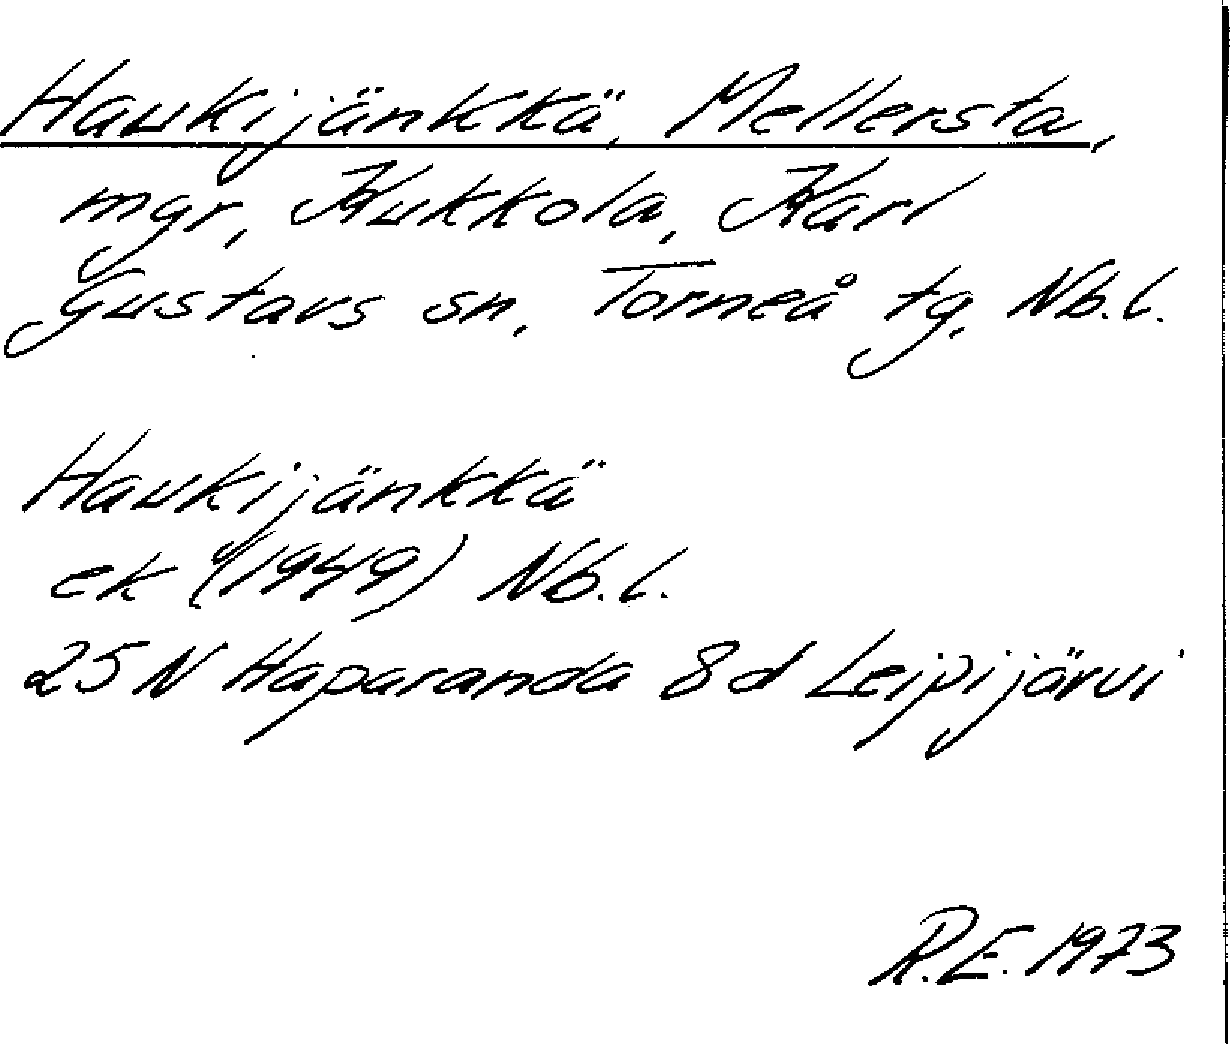 Haukijänkkä, Mellersta,
mgr, Kukkola, Karl
Gustavs sn, Torneå tg, Nb.l.
Haukijänkkä
ek (1949) Nb.l.
25 N Haparanda 8 d Leipijärvi
R.E. 1973